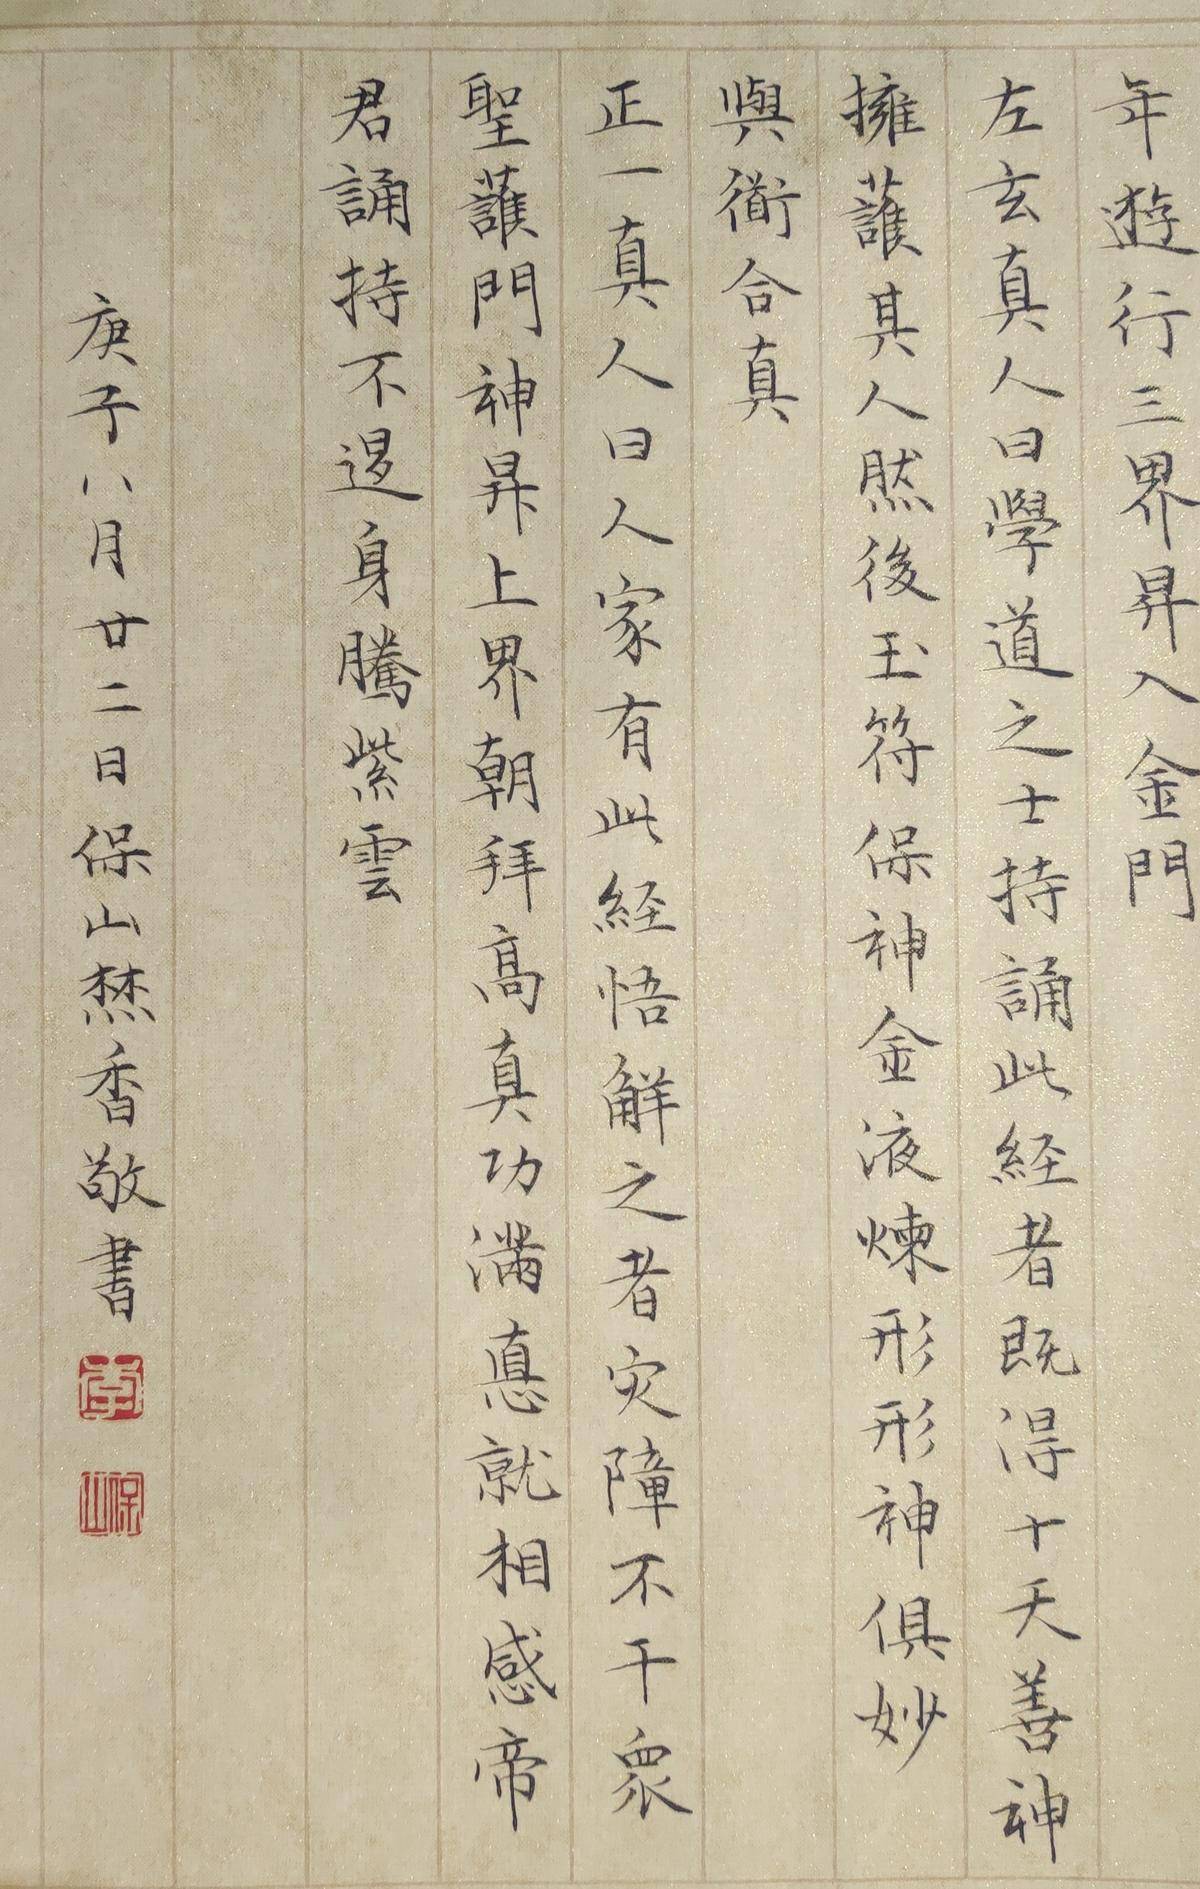 年遊行三界昇入金門
左玄真人曰學道之士持誦此經者既得十天善神
擁護其人然後玉符保神金液煉形形神俱妙
與衜合真
正一真人曰人家有此經悟解之者灾障不干眾
聖護門神昇上界朝拜高真功滿悳就相感帝
君誦持不退身騰紫雲
庚子八月廿二日保山焚香敬書
保山